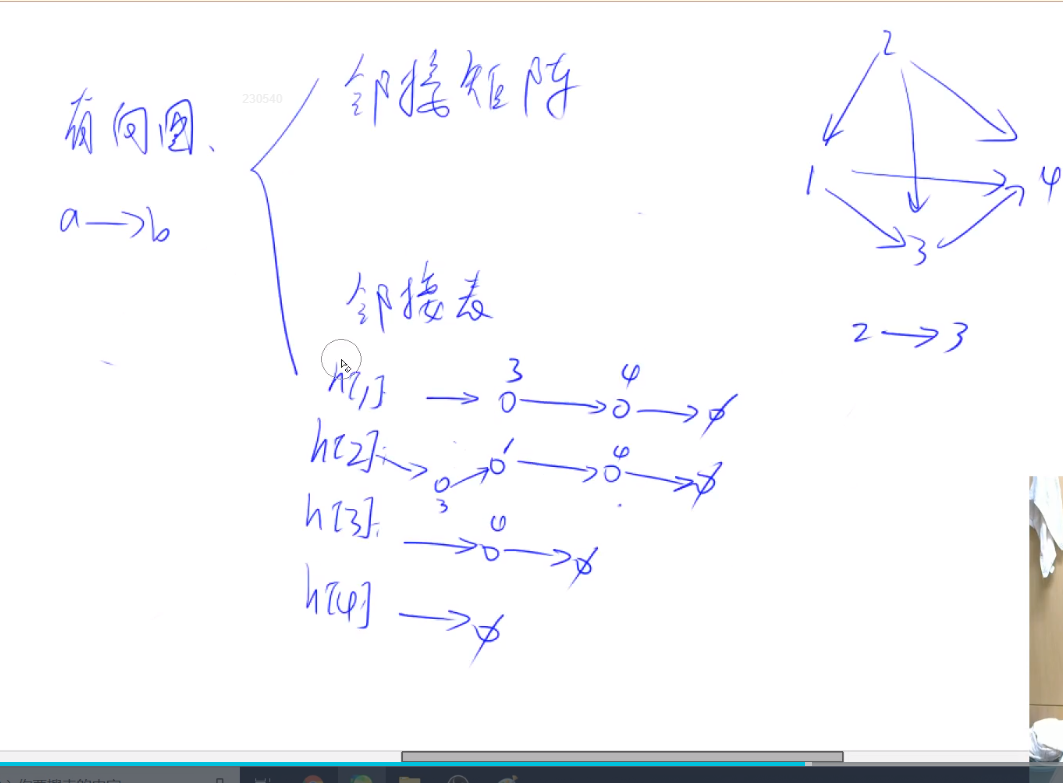 邻接矩阵
230540
有向图、
a→b
邻接表
h[1] → 3 → 4 → ∅
h[2] → 3 → 1 → 4 → ∅
h[3] → 4 → ∅
h[4] → ∅
2
1
4
3
2→3